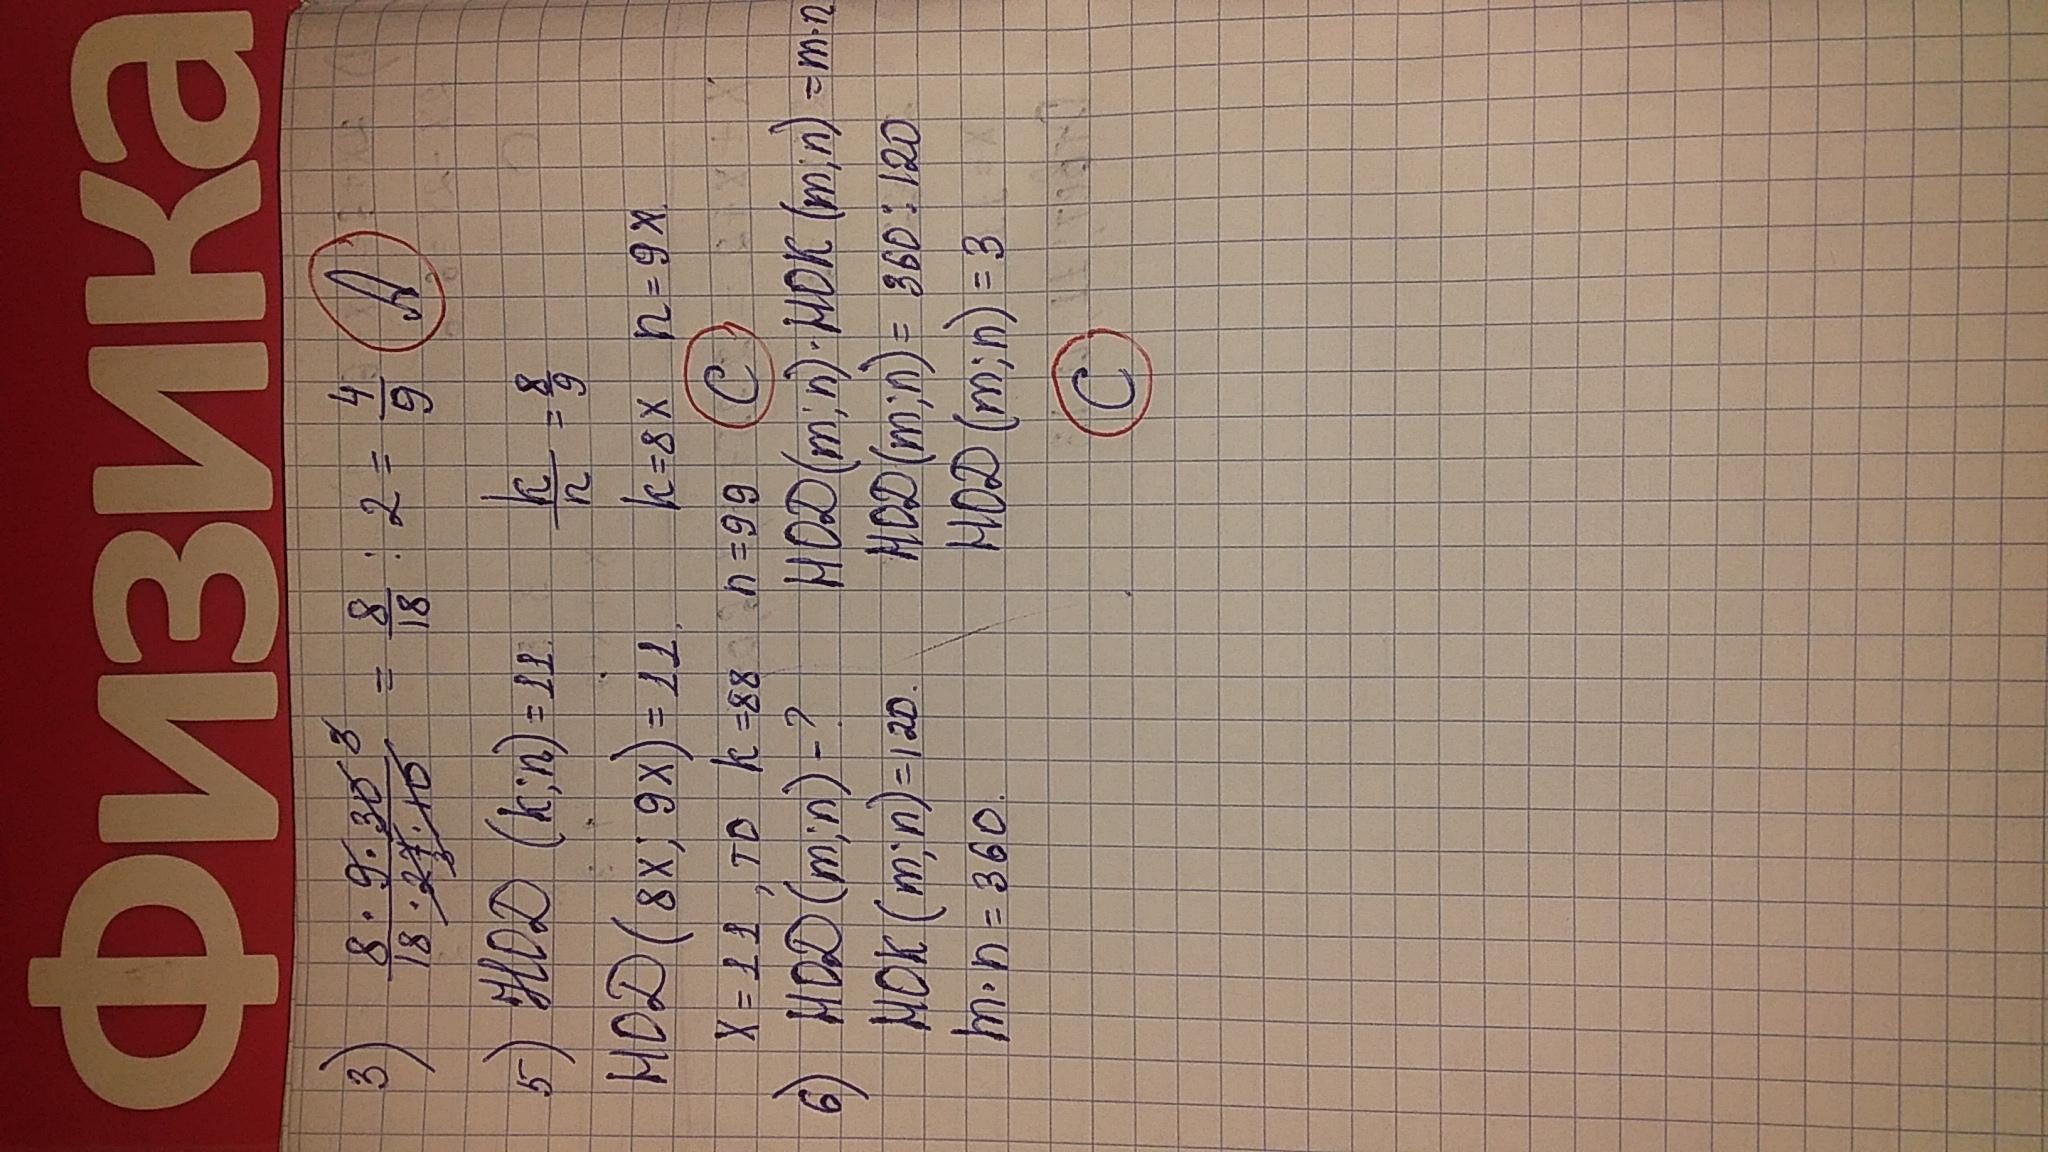 ФИЗИКА
3) 8 · 9 · 30 3 / 18 · 27 3 · 10 = 8/18 : 2 = 4/9
5) НОД (k; n) = 11. k/n = 8/9
НОД (8x; 9x) = 11. k = 8x n = 9x.
x = 11, то k = 88 n = 99 C
6) НОД (m; n) - ? НОД (m; n) · НОК (m; n) = m · n
НОК (m; n) = 120. НОД (m; n) = 360 : 120
m · n = 360. НОД (m; n) = 3
C